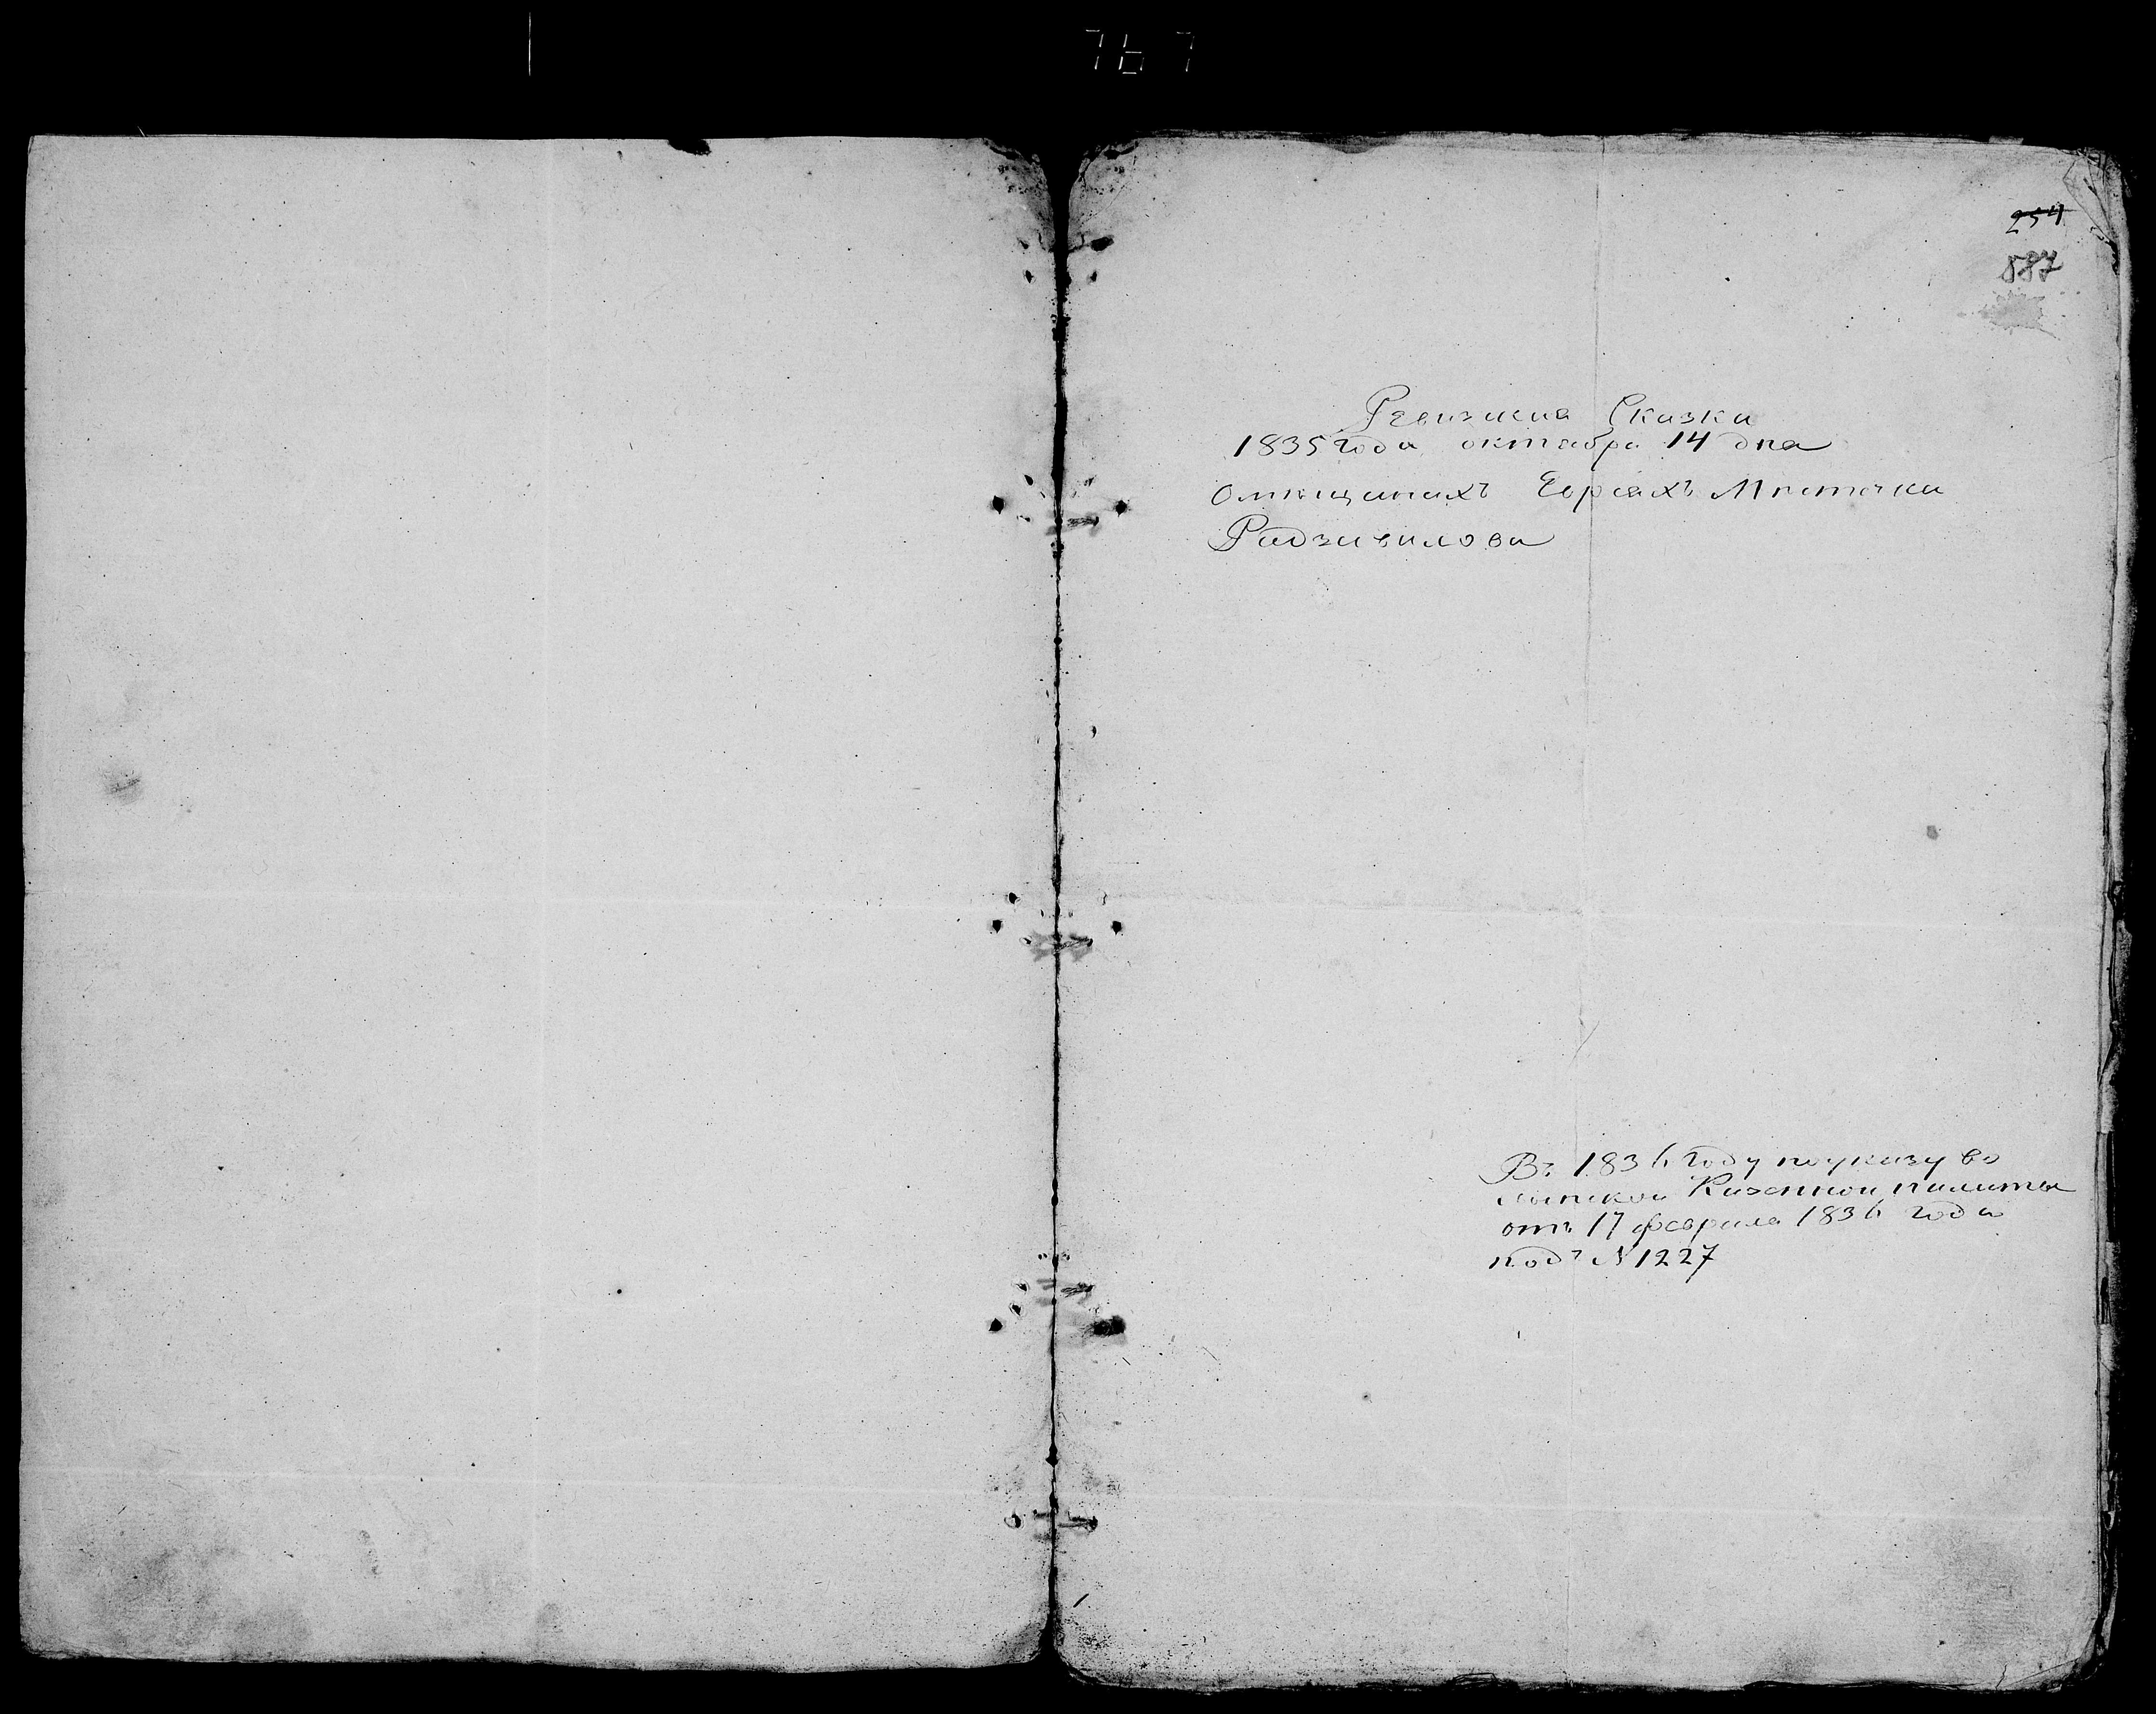 767
254
587
Ревизкия Сказки
1835 года октября 14 дня
омещанахъ Евреяхъ Мистечка
Радзивилова
Въ 1836 году поуказу Во
лынской Казенной палаты
отъ 17 февраля 1836 года
подъ N 1227